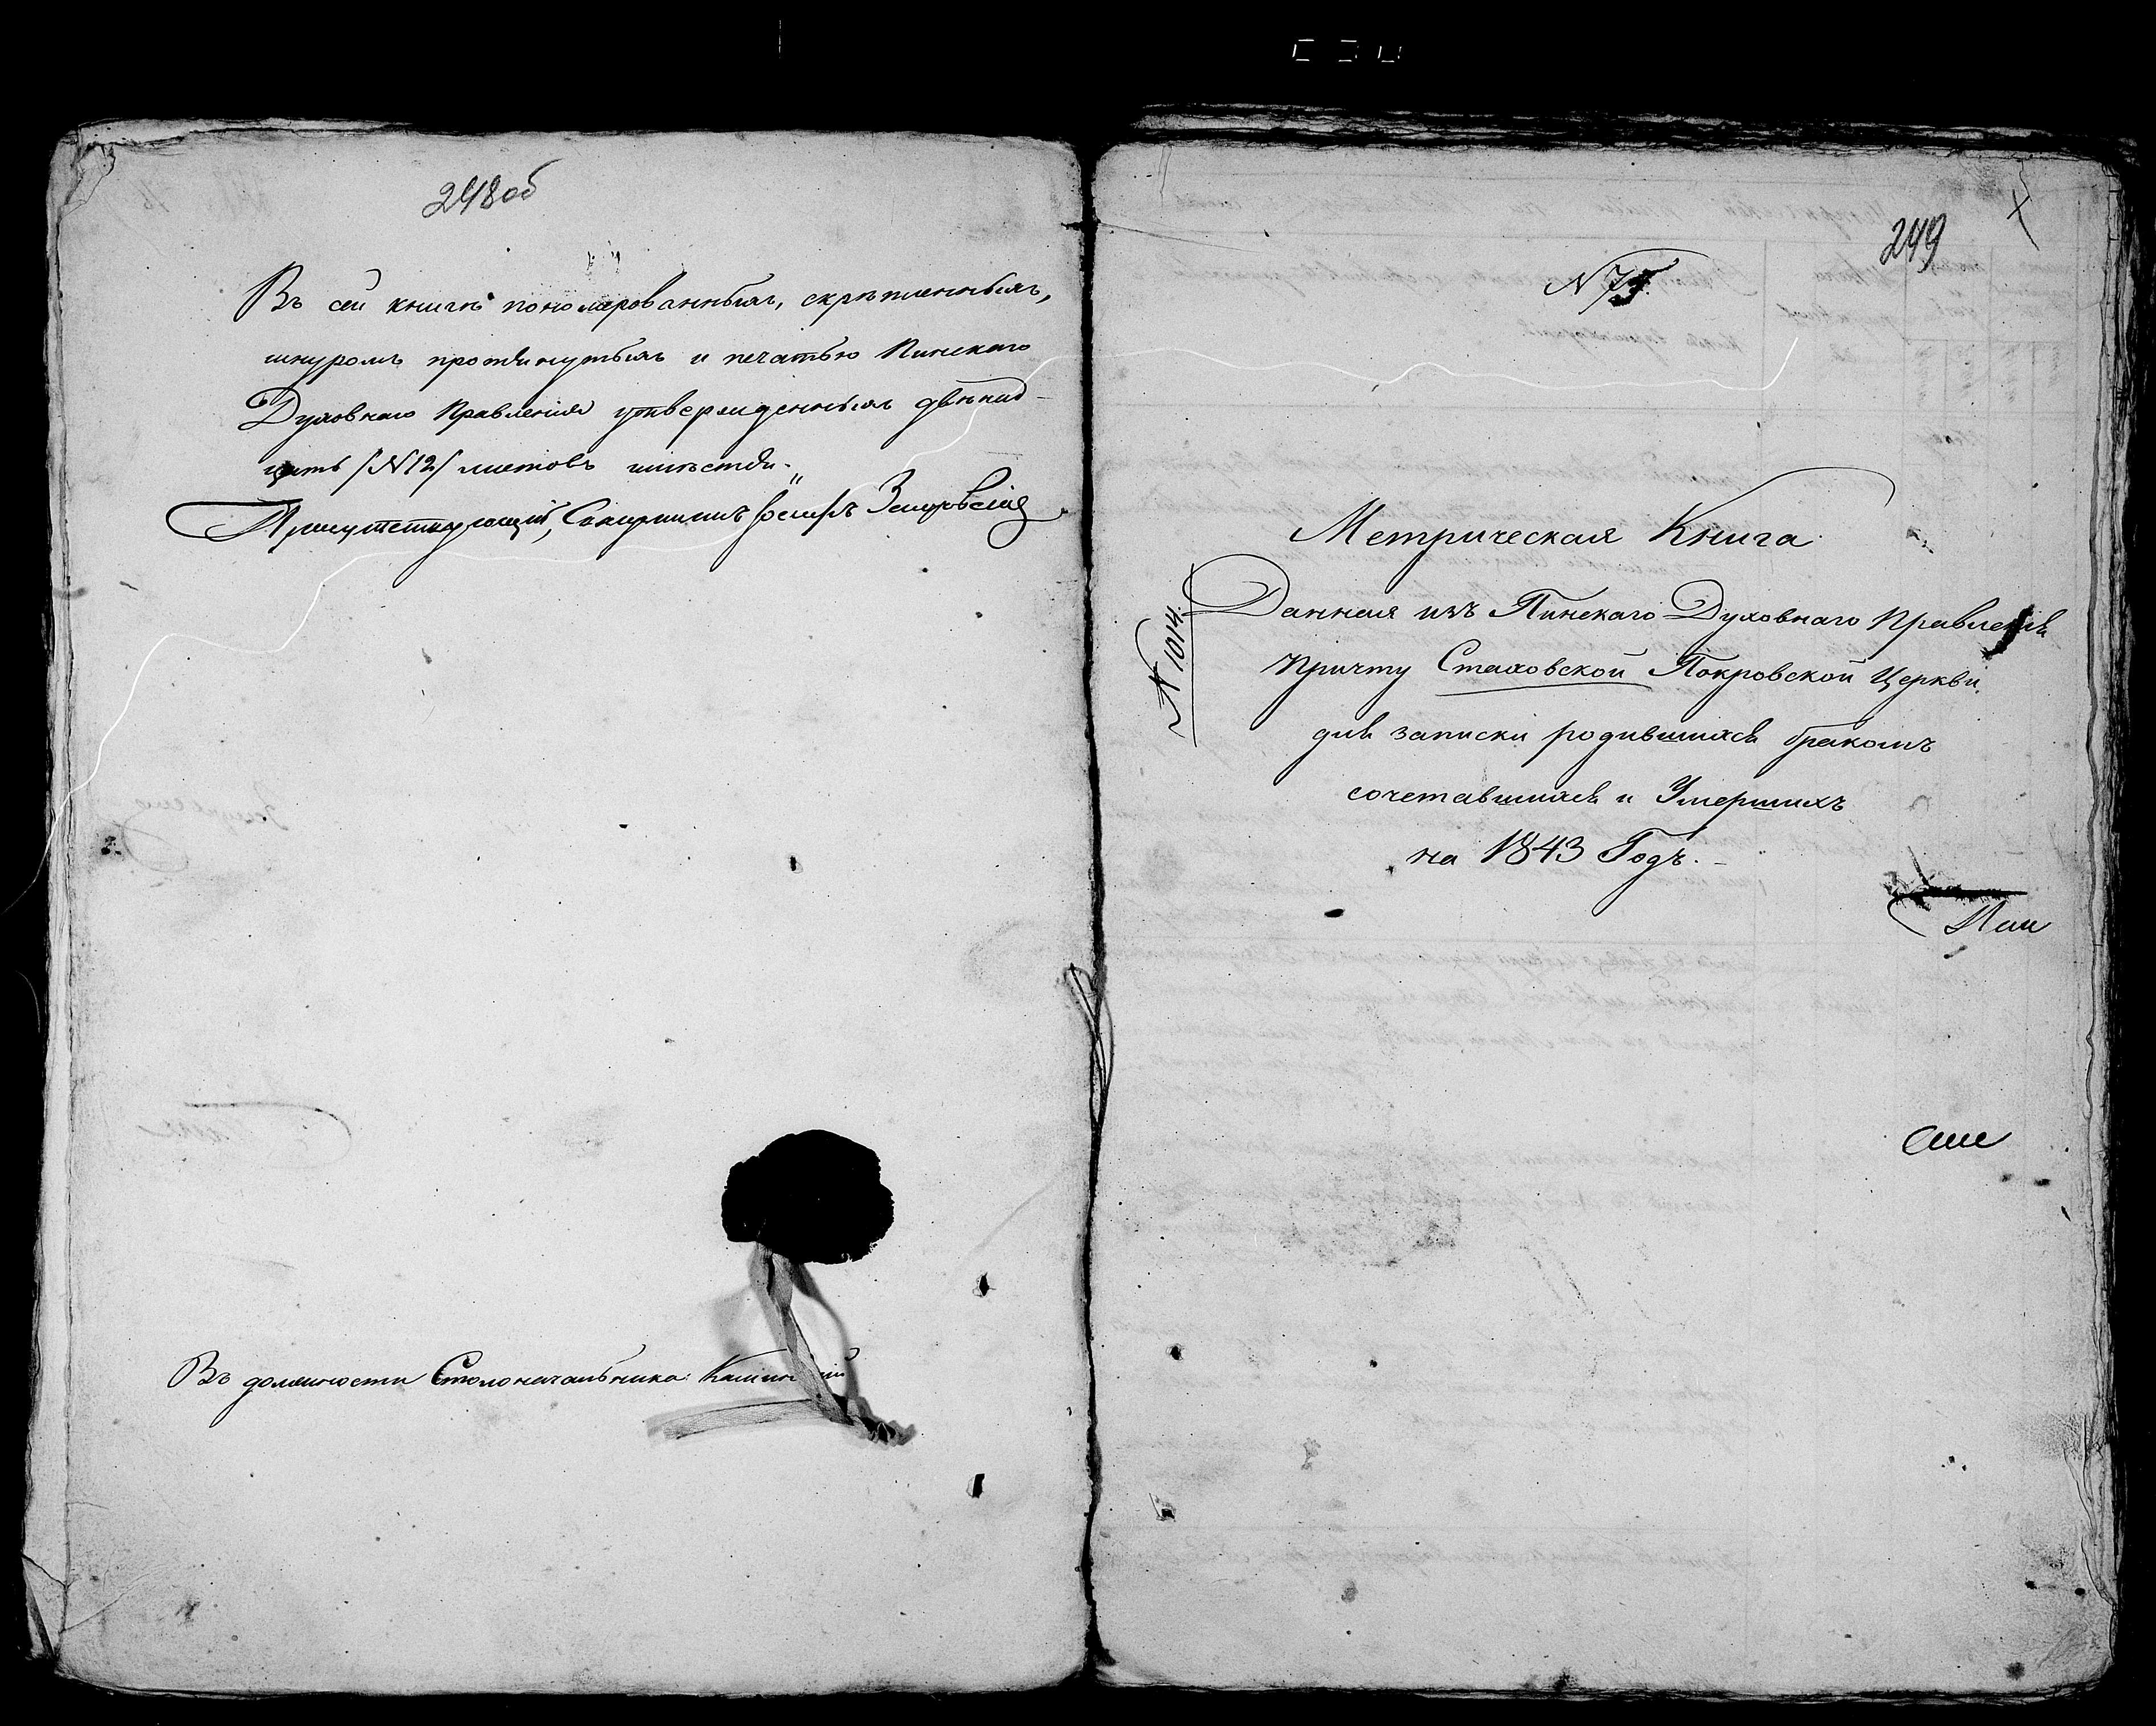 248об
Въ сей книгѣ пономерованныхъ, скрѣпленныхъ,
шнуромъ протянутыхъ и печатью Пинскаго
Духовнаго Правленія утвержденныхъ двѣнад-
цать /N 12/ листовъ имѣется.
Присутствующій, Священникъ
Въ должности Столоначальника:
249
N 75.
Метрическая Книга
Данная изъ Пинскаго Духовнаго Правленія
Причту Стаховской Покровской Церкви
для записки родившихся бракомъ
сочетавшихся и Умершихъ
на 1843 Годъ.
N 1014.